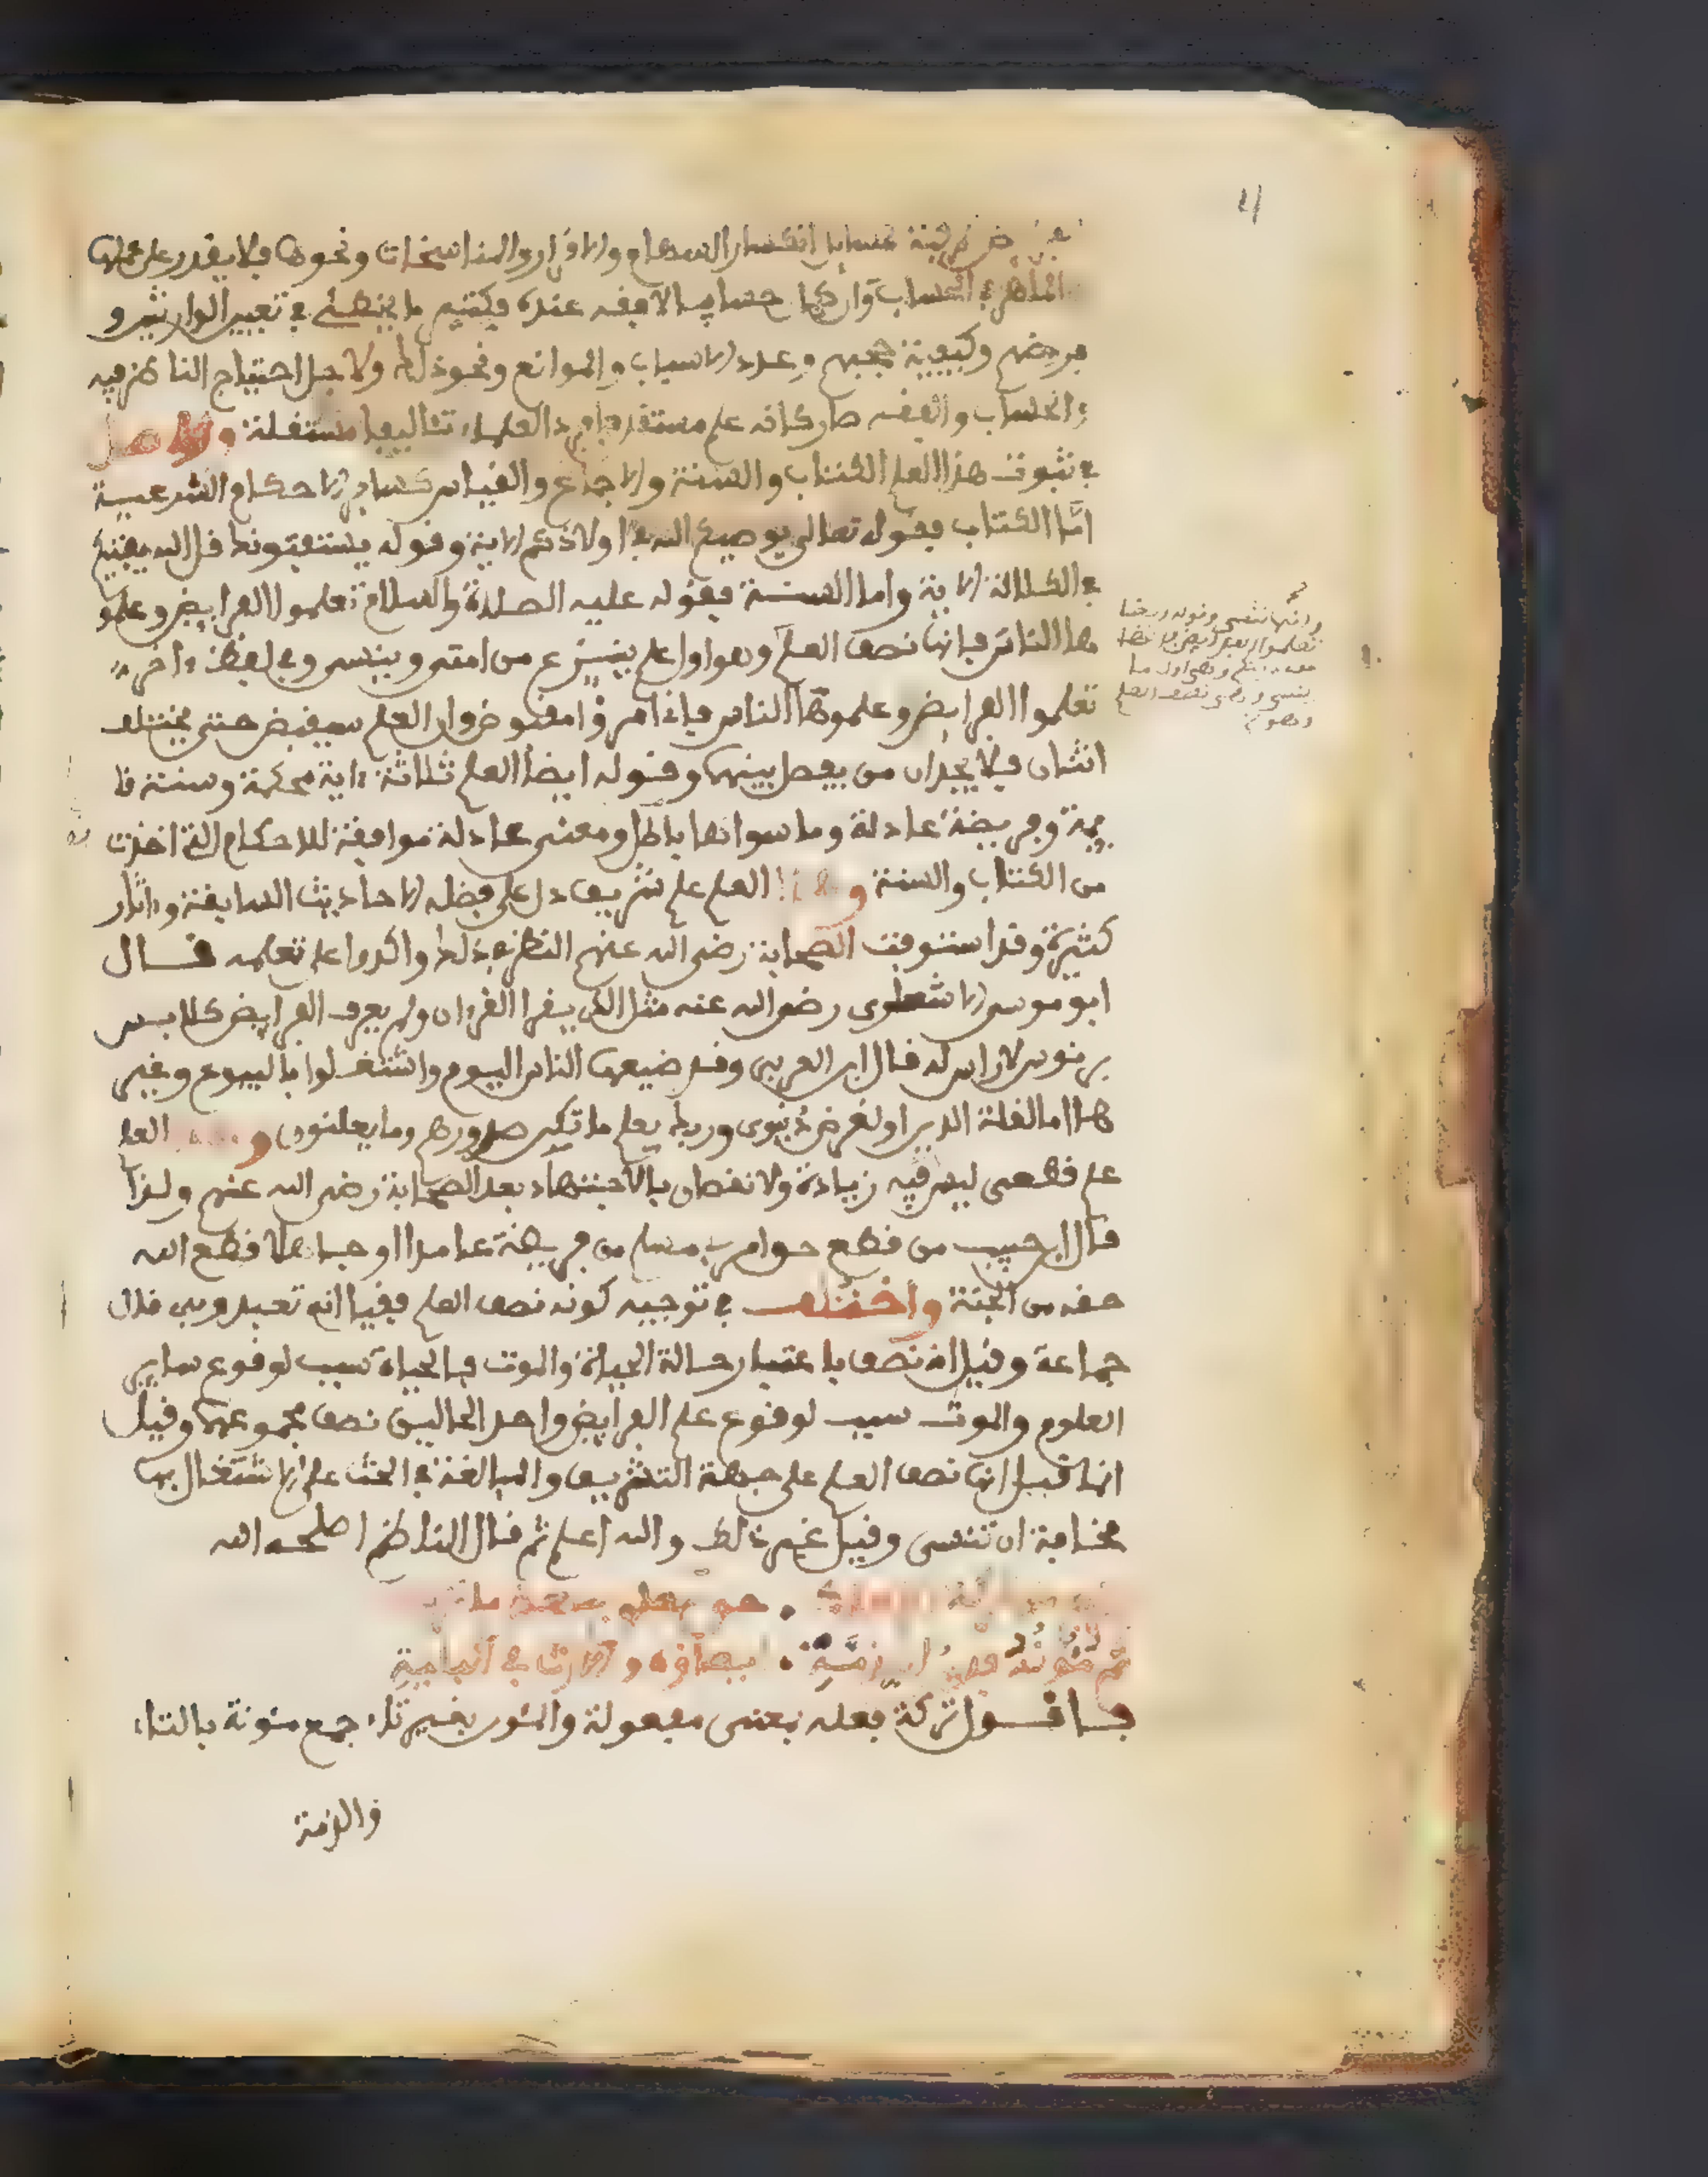 مسايل انكسار السهام والاقرار والمناسخات ونحوها فلا يقدر على عملها
الماهر في الحساب وان كان حسابيا لا فقه عنده فكثيرا ما يخطئ في تعيين الوارثين و
فرضهم وكيفية حجبهم وعدد الاسباب والموانع ونحو ذلك ولاجل احتياج الناظر فيه
الحساب والفقه صار كانه علم مستقل العلماء تئاليفا مستقلة والاصل
في ثبوت هذا العلم الكتاب والسنة والاجماع والقياس كساير الاحكام الشرعية
امّا الكتاب فقوله تعالى يوصيكم الله في اولادكم الاية وقوله يستفتونك قل الله يفتيكم
في الكلالة الاية واما السنة فقوله عليه الصلاة والسلام تعلموا الفرايض وعلمو
ها الناس فانها نصف العلم وهو اول علم ينتزع من امتي وينسى وفي لفظ ءاخر
تعلموا الفرايض وعلموها الناس فاني امرؤ مقبوض وان العلم سيقبض حتى يختلف
اثنان فلا يجدان من يفصل بينهما وقوله ايضا العلم ثلاثة ءاية محكمة وسنة قا
يمة وفريضة عادلة وما سواها باطل ومعنى عادلة موافقة للاحكام التي اخذت
من الكتاب والسنة وهذا العلم علم شريف دل على فضله الاحاديث السابقة وءاثار
كثيرة وقد استوفت الصحابة رضي الله عنهم النظر في ذلك واكدوا على تعلمه قال
ابو موسى الاشعري رضي الله عنه مثل الذي يقرا القرءان ولم يعرف الفرايض كلابس
برنوس لا راس له قال ابن العربي وقد ضيعها الناس اليوم واشتغلوا بالبيوع وغير
ها اما لقلة الدين او لغرض دنيوي وربك يعلم ما تكن صدورهم وما يعلنون وهذا العلم
علم قطعي ليس فيه زيادة ولا نقصان بالاجتهاد بعد الصحابة رضي الله عنهم ولذا
قال ابن حبيب من قطع حوام مسلم من فريضة عامدا او جاهلا قطع الله
حقه من الجنة واختلف في توجيه كونه نصف العلم فقيل انه تعبدي قال
جماعة وقيل انه نصف باعتبار حالة الحياة والموت فالحياة سبب لوقوع ساير
العلوم والموت سبب لوقوع علم الفرايض واحد الحالين نصف مجموعهما وقيل
انما قيل انها نصف العلم على جهة التشريف والمبالغة في الحث على الاشتغال بها
مخافة ان تنسى وقيل غير ذلك والله اعلم ثم قال الناظم اصلحه الله
فاقول تركة فعلة بمعنى مفعولة والمئون بغير تاء جمع مئونة بالتاء
والذمة
وانها تنسى وقوله ايضا
تعلموا الفرايض فانها
من دينكم وهي اول ما
ينسى وهي نصف العلم